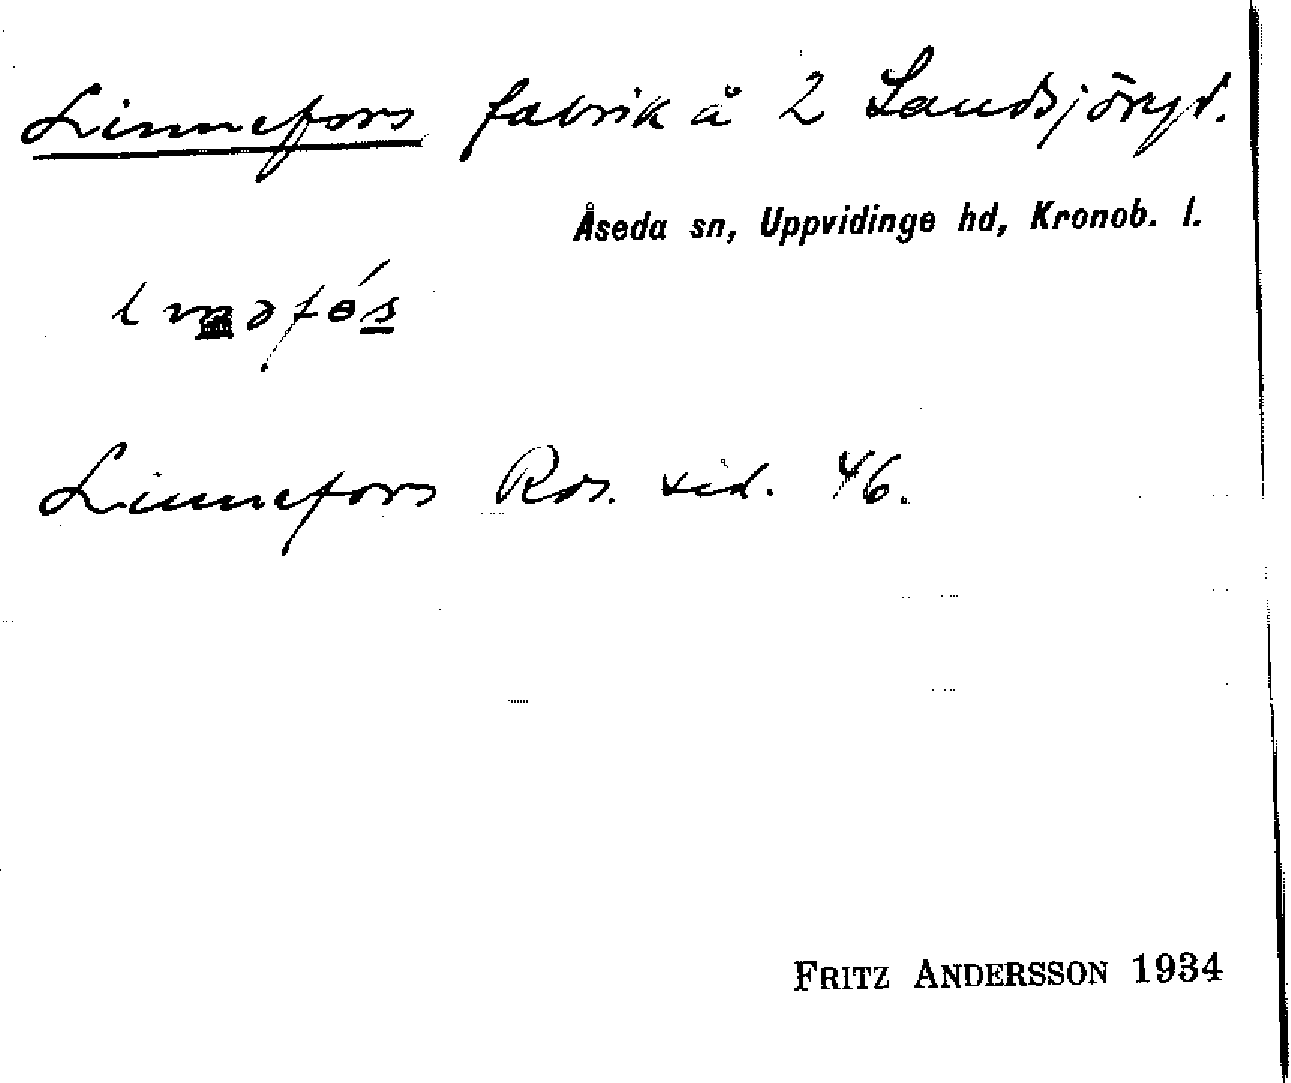 Linnefors fabrik å 2 Landsjöryd.
Åseda sn, Uppvidinge hd, Kronob. l.
Linnefors Ros. sid. 46.
FRITZ ANDERSSON 1934